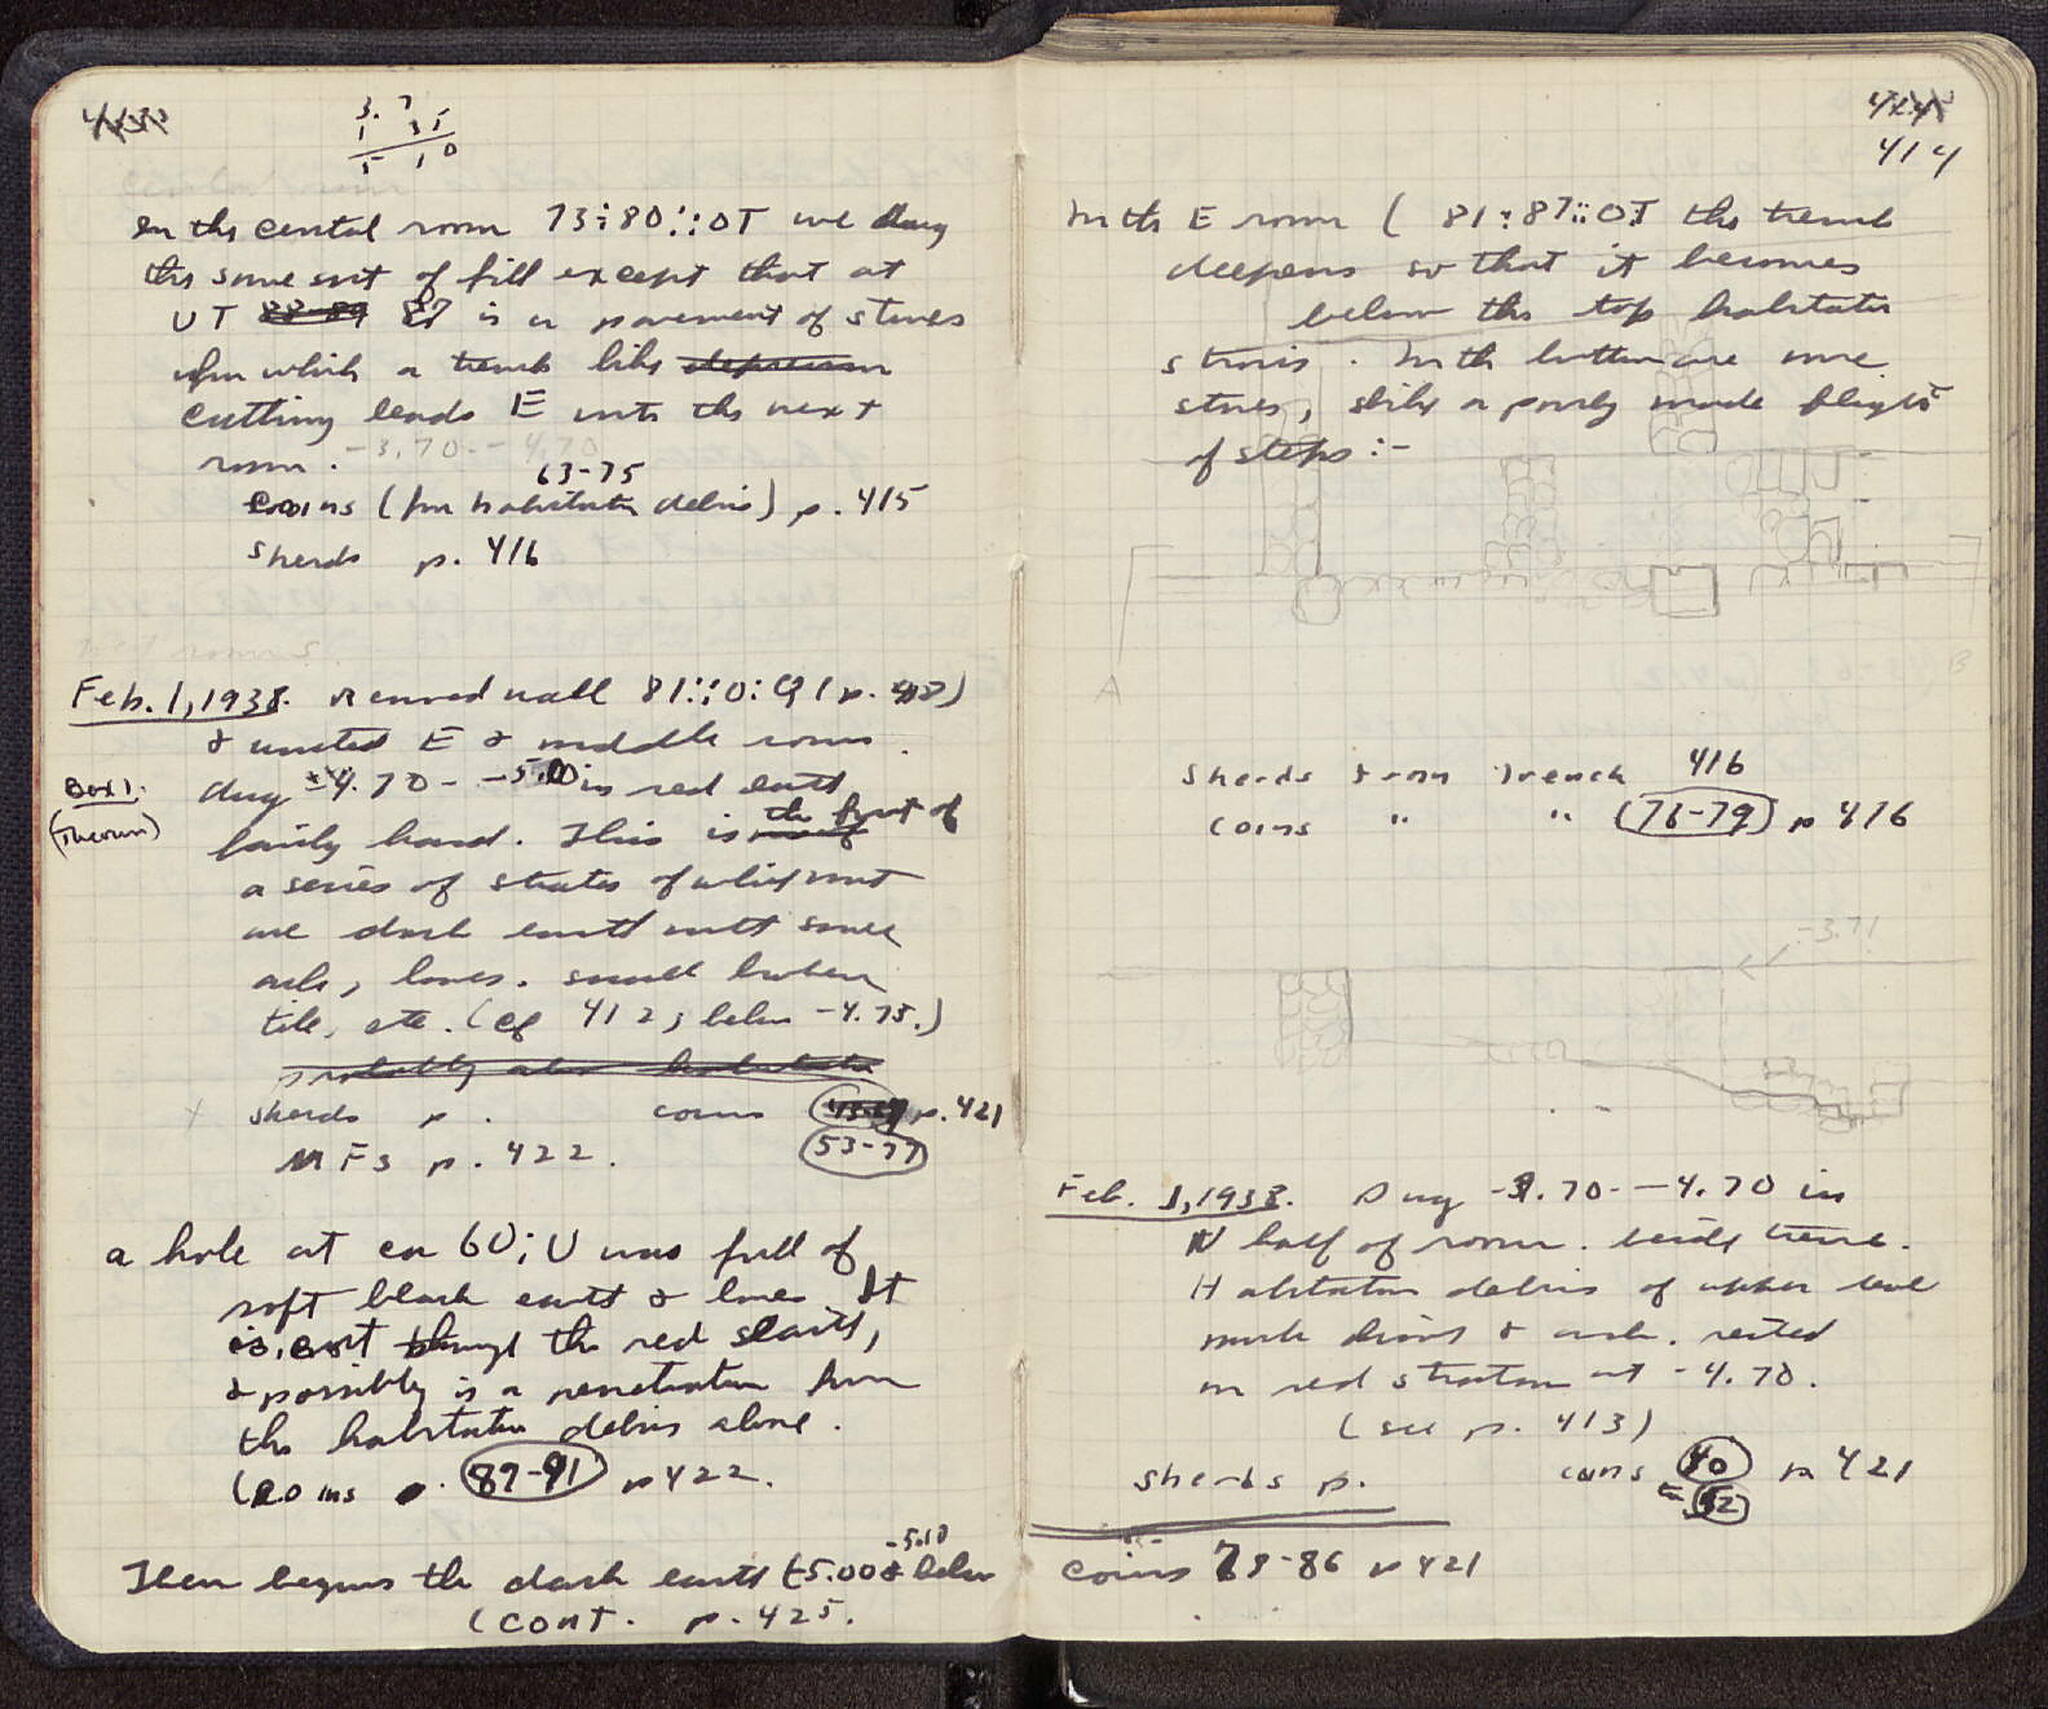 3.7
1 35
5 10
In the central room 73÷80∷OT we dug
the same sort of fill except that at
UT 88-89 87 is a pavement of stones
from which a trench like depression
cutting leads E into the next
room. -3.70 - -4.70
63-75
Coins (from habitation debris) p. 415
Sherds p. 416
Feb. 1, 1938. Removed wall 81
& united E & middle rooms.
Box 1.
dug -4.70 - -5.00 in red earth
fairly hard. This is the first of
a series of strates of which most
are dark earth with some
ash, bones, small broken
tile, etc. (cf 412, below -4.75.)
probably also habitation
Sherds p. coins p. 421
MFs p. 422. 53-77
a hole at ca 60; U was full of
soft black earth & bones It
is cut through the red strata,
& possibly is a penetration from
the habitation debris above.
(Coins p. 87-91 p 422.
-5.10
Then begins the dark earth (-5.00 & below
(cont. p. 425.
414
In the E room ( 81÷87∷OT the trench
deepens so that it becomes
below the top habitation
strais. In the bottom are more
stones, like a poorly made flight
of steps:-
A B
Sherds from Trench 416
Coins " " (76-79) p 416
-3.71
Feb. 1, 1938. Dug -3.70 - -4.70 in
N half of room.
Habitation debris of upper level
much bones & ash. rested
on red stratum at -4.70.
(see p. 413)
Sherds p. coins 40 p 421
52
Coins 78-86 p 421